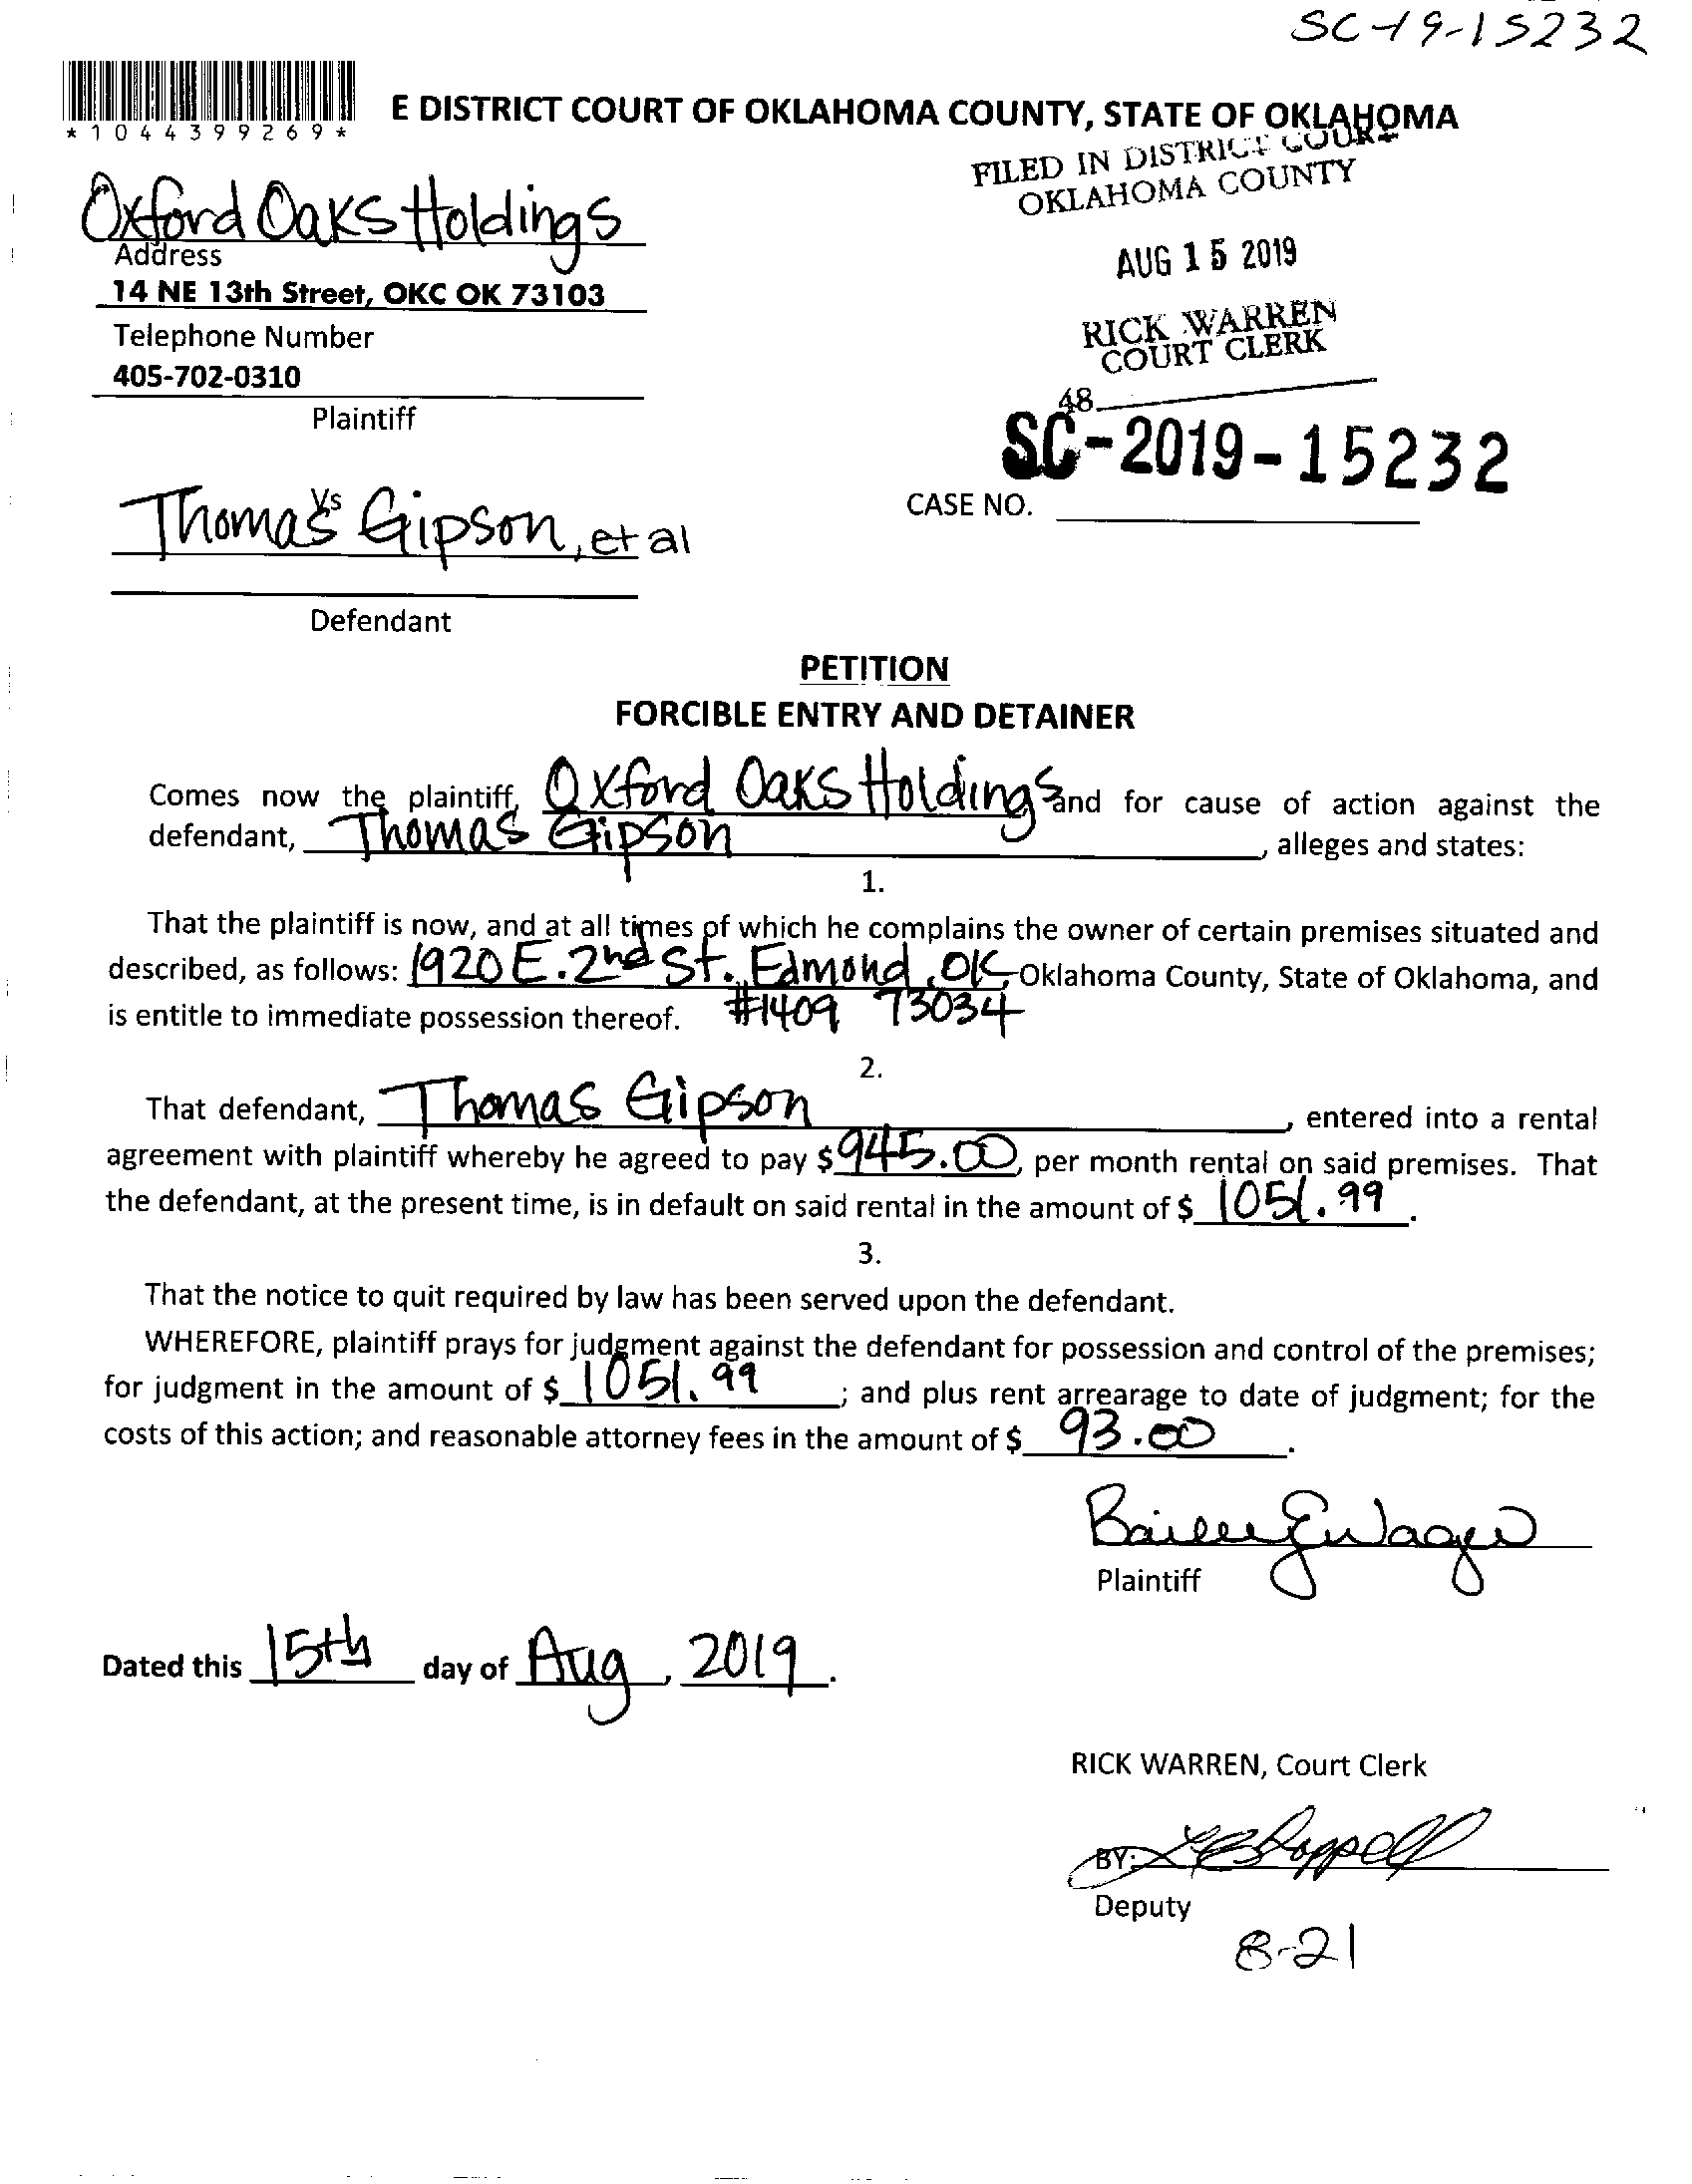 SC-19-15232
*1044399269*
E DISTRICT COURT OF OKLAHOMA COUNTY, STATE OF OKLAHOMA
FILED IN DISTRICT COURT
OKLAHOMA COUNTY
Oxford Oaks Holdings
Address
AUG 15 2019
14 NE 13th Street, OKC OK 73103
Telephone Number
RICK WARREN
COURT CLERK
405-702-0310
48
Plaintiff
SC-2019-15232
Vs
CASE NO.
Thomas Gipson, et al
Defendant
PETITION
FORCIBLE ENTRY AND DETAINER
Comes now the plaintiff, Oxford Oaks Holdings and for cause of action against the
defendant, Thomas Gipson, alleges and states:
1.
That the plaintiff is now, and at all times of which he complains the owner of certain premises situated and
described, as follows: 1920 E. 2nd St. Edmond, OK, Oklahoma County, State of Oklahoma, and
is entitle to immediate possession thereof. #1409 73034
2.
That defendant, Thomas Gipson, entered into a rental
agreement with plaintiff whereby he agreed to pay $945.00, per month rental on said premises. That
the defendant, at the present time, is in default on said rental in the amount of $ 1051.99.
3.
That the notice to quit required by law has been served upon the defendant.
WHEREFORE, plaintiff prays for judgment against the defendant for possession and control of the premises;
for judgment in the amount of $ 1051.99; and plus rent arrearage to date of judgment; for the
costs of this action; and reasonable attorney fees in the amount of $ 93.00.
Plaintiff
Dated this 15th day of Aug, 2019.
RICK WARREN, Court Clerk
BY:
Deputy
8-21